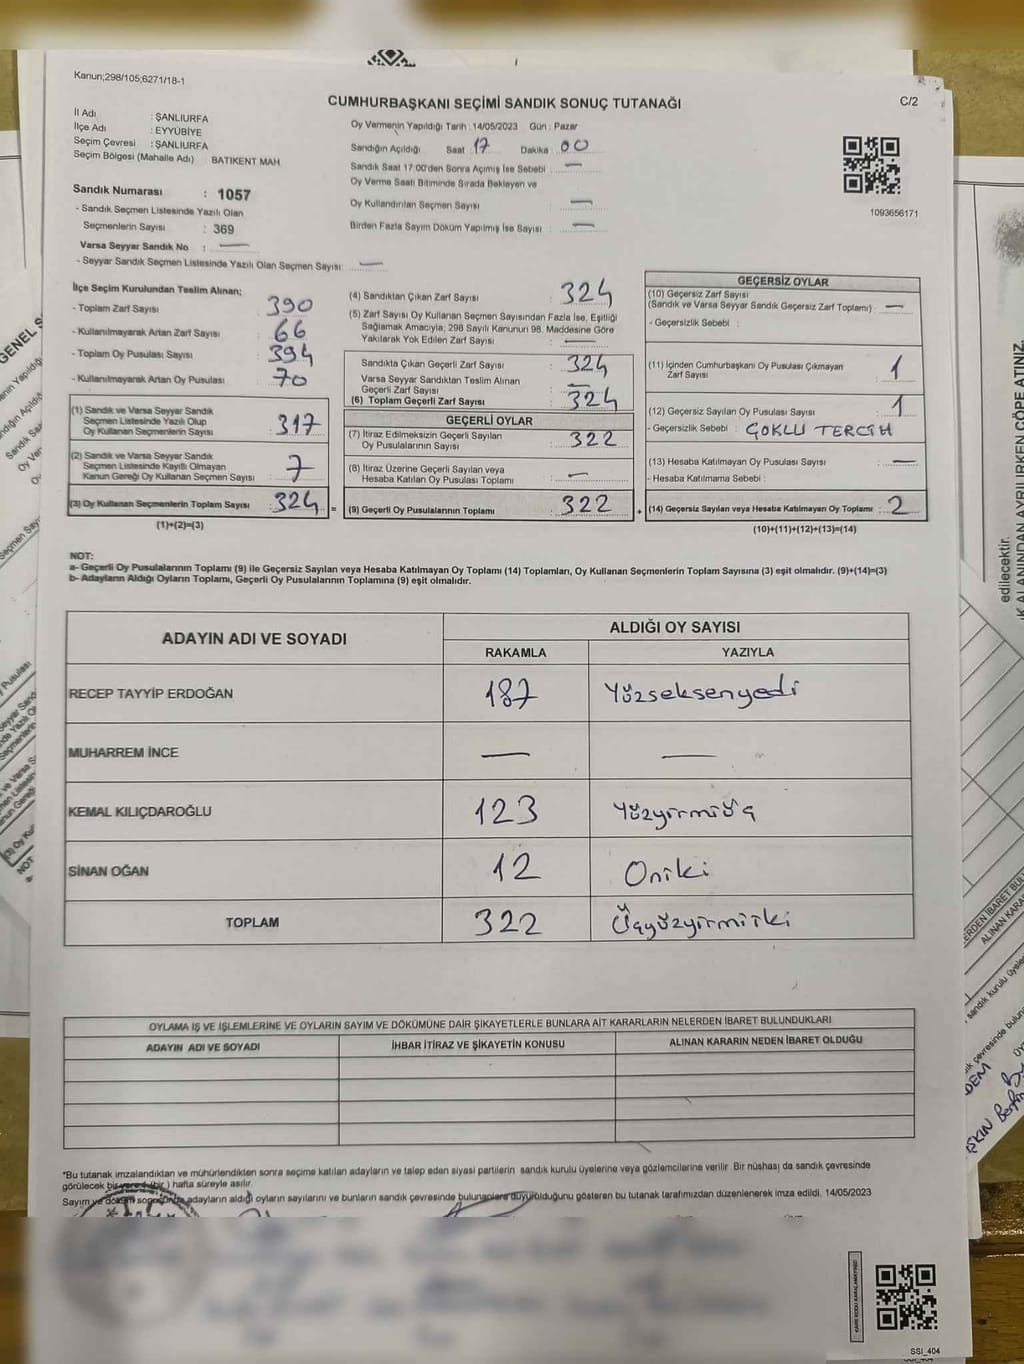 Kanun;298/105;6271/18-1
CUMHURBAŞKANI SEÇİMİ SANDIK SONUÇ TUTANAĞI
C/2
İl Adı : ŞANLIURFA
İlçe Adı : EYYÜBİYE
Seçim Çevresi : ŞANLIURFA
Seçim Bölgesi (Mahalle Adı) : BATIKENT MAH
Sandık Numarası : 1057
- Sandık Seçmen Listesinde Yazılı Olan
Seçmenlerin Sayısı : 369
Varsa Seyyar Sandık No : —
- Seyyar Sandık Seçmen Listesinde Yazılı Olan Seçmen Sayısı: —
Oy Vermenin Yapıldığı Tarih :14/05/2023 Gün : Pazar
Sandığın Açıldığı Saat : 17 Dakika : 00
Sandık Saat 17:00'den Sonra Açımış İse Sebebi : —
Oy Verme Saati Bitiminde Sırada Bekleyen ve
Oy Kullandırılan Seçmen Sayısı : —
Birden Fazla Sayım Döküm Yapılmış İse Sayısı : —
1093656171
İlçe Seçim Kurulundan Teslim Alınan;
- Toplam Zarf Sayısı : 390
- Kullanılmayarak Artan Zarf Sayısı : 66
- Toplam Oy Pusulası Sayısı : 394
- Kullanılmayarak Artan Oy Pusulası : 70
(1) Sandık ve Varsa Seyyar Sandık
Seçmen Listesinde Yazılı Olup
Oy Kullanan Seçmenlerin Sayısı : 317
(2) Sandık ve Varsa Seyyar Sandık
Seçmen Listesinde Kayıtlı Olmayan
Kanun Gereği Oy Kullanan Seçmen Sayısı : 7
(3) Oy Kullanan Seçmenlerin Toplam Sayısı : 324 =
(1)+(2)=(3)
(4) Sandıktan Çıkan Zarf Sayısı : 324
(5) Zarf Sayısı Oy Kullanan Seçmen Sayısından Fazla İse, Eşitliği
Sağlamak Amacıyla; 298 Sayılı Kanunun 98. Maddesine Göre
Yakılarak Yok Edilen Zarf Sayısı : —
Sandıkta Çıkan Geçerli Zarf Sayısı : 324
Varsa Seyyar Sandıktan Teslim Alınan
Geçerli Zarf Sayısı : —
(6) Toplam Geçerli Zarf Sayısı : 324
GEÇERLİ OYLAR
(7) İtiraz Edilmeksizin Geçerli Sayılan
Oy Pusulalarının Sayısı : 322
(8) İtiraz Üzerine Geçerli Sayılan veya
Hesaba Katılan Oy Pusulası Toplamı : —
(9) Geçerli Oy Pusulalarının Toplamı : 322 +
GEÇERSİZ OYLAR
(10) Geçersiz Zarf Sayısı
(Sandık ve Varsa Seyyar Sandık Geçersiz Zarf Toplamı) : —
- Geçersizlik Sebebi :
(11) İçinden Cumhurbaşkanı Oy Pusulası Çıkmayan
Zarf Sayısı : 1
(12) Geçersiz Sayılan Oy Pusulası Sayısı : 1
- Geçersizlik Sebebi : ÇOKLU TERCİH
(13) Hesaba Katılmayan Oy Pusulası Sayısı : —
- Hesaba Katılmama Sebebi :
(14) Geçersiz Sayılan veya Hesaba Katılmayan Oy Toplamı : 2
(10)+(11)+(12)+(13)=(14)
NOT:
a- Geçerli Oy Pusulalarının Toplamı (9) ile Geçersiz Sayılan veya Hesaba Katılmayan Oy Toplamı (14) Toplamları, Oy Kullanan Seçmenlerin Toplam Sayısına (3) eşit olmalıdır. (9)+(14)=(3)
b- Adayların Aldığı Oyların Toplamı, Geçerli Oy Pusulalarının Toplamına (9) eşit olmalıdır.
ADAYIN ADI VE SOYADI
ALDIĞI OY SAYISI
RAKAMLA YAZIYLA
RECEP TAYYİP ERDOĞAN 187 Yüzseksenyedi
MUHARREM İNCE — —
KEMAL KILIÇDAROĞLU 123 Yüzyirmiüç
SİNAN OĞAN 12 Oniki
TOPLAM 322 Üçyüzyirmiiki
OYLAMA İŞ VE İŞLEMLERİNE VE OYLARIN SAYIM VE DÖKÜMÜNE DAİR ŞİKAYETLERLE BUNLARA AİT KARARLARIN NELERDEN İBARET BULUNDUKLARI
ADAYIN ADI VE SOYADI İHBAR İTİRAZ VE ŞİKAYETİN KONUSU ALINAN KARARIN NEDEN İBARET OLDUĞU
*Bu tutanak imzalandıktan ve mühürlendikten sonra seçime katılan adayların ve talep eden siyasi partilerin sandık kurulu üyelerine veya gözlemcilerine verilir. Bir nüshası da sandık çevresinde
görülecek bir yere 1 (bir ) hafta süreyle asılır.
Sayım ve döküm sonucunda adayların aldığı oyların sayılarını ve bunların sandık çevresinde bulunanlara duyurulduğunu gösteren bu tutanak tarafımızdan düzenlenerek imza edildi. 14/05/2023
SSI_404